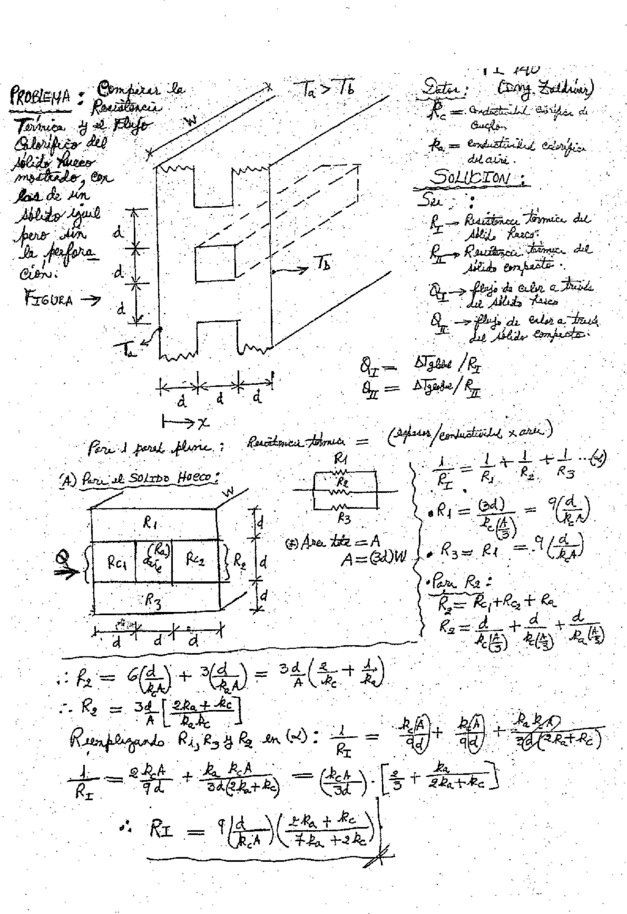 PROBLEMA: Comparar la
Resistencia
Térmica y el Flujo
Calorífico del
sólido hueco
mostrado, con
las de un
sólido igual
pero sin
la perfora
ción.
FIGURA →
W
Ta > Tb
d
d
d
Tb
Ta
d d d
→ x
PI 140
Datos: (Ing. Zaldívar)
kc = conductividad calorífica de
ka = conductividad calorífica
del aire.
SOLUCION:
Sea:
R_I → Resistencia térmica del
sólido hueco.
R_II → Resistencia térmica del
sólido compacto.
Q_I → flujo de calor a través
del sólido hueco
Q_II → flujo de calor a través
del sólido compacto.
Q_I = ΔTglobal / R_I
Q_II = ΔTglobal / R_II
Para 1 pared plana: Resistencia térmica = (espesor/conductividad x area)
(A) Para el SOLIDO HUECO:
W
R1
Q
Rc1
(Ra)
aire
Rc2
R2
R3
d
d
d
d d d
R1
R2
R3
(*) Area total = A
A = (3d)W
1/R_I = 1/R1 + 1/R2 + 1/R3 ...(α)
• R1 = (3d)/(kc(A/3)) = 9(d/kcA)
• R3 = R1 = 9(d/kcA)
• Para R2:
R2 = Rc1 + Rc2 + Ra
R2 = d/(kc(A/3)) + d/(kc(A/3)) + d/(ka(A/3))
∴ R2 = 6(d/kcA) + 3(d/kaA) = 3d/A (2/kc + 1/ka)
∴ R2 = 3d/A [(2ka + kc)/(kakc)]
Reemplazando R1, R3 y R2 en (α): 1/R_I = kc(A)/9(d) + kc(A)/9(d) + ka kc(A)/3d(2ka+kc)
1/R_I = 2kcA/9d + ka kcA/3d(2ka+kc) = (kcA/3d) · [2/3 + ka/(2ka+kc)]
∴ R_I = 9(d/kcA)((2ka + kc)/(7ka + 2kc))